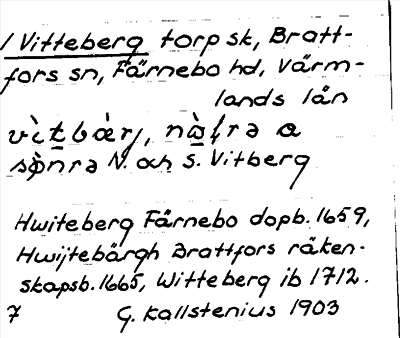 / Vitteberg torp sk, Bratt-
fors sn, Färnebo hd, Värm-
lands län
N. och S. Vitberg
Hwiteberg Färnebo dopb. 1659,
Hwijtebärgh Brattfors räken-
skapsb. 1665, Witteberg ib 1712.
7 G. Kallstenius 1903